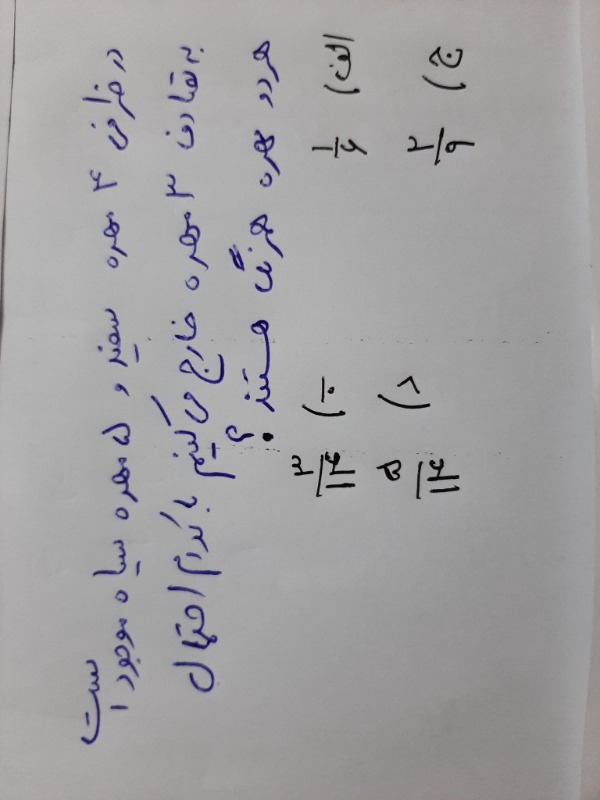 در ظرفی ۴ مهره سفید و ۵ مهره سیاه موجود است
به تصادف ۳ مهره خارج می کنیم با کدام احتمال
هر دو مهره همرنگ هستند ؟
الف) ۱/۶ ب) ۳/۱۴
ج) ۲/۹ د) ۵/۱۴